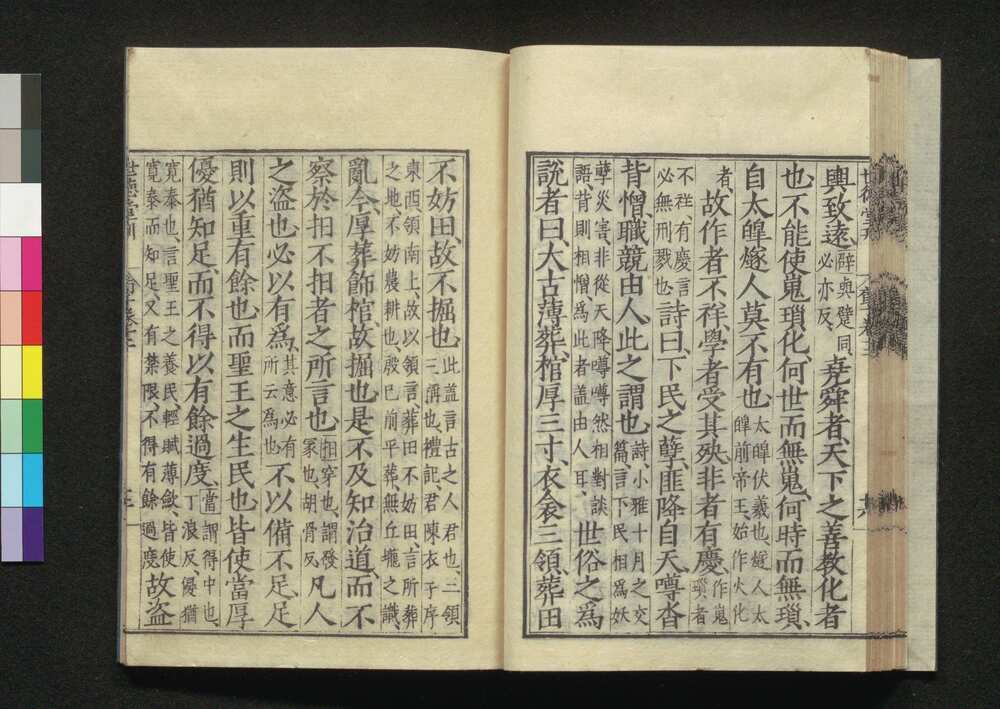 輿致遠、辟與躄同、必亦反、堯舜者、天下之善教化者
也、不能使嵬瑣化、何世而無嵬、何時而無瑣、
自太皥燧人莫不有也、太皥伏羲也、燧人太皥前帝王、始作火化
者、故作者不祥、學者受其殃、非者有慶、作嵬瑣者
不祥、有慶言必無刑戮也、詩曰、下民之孽、匪降自天、噂沓
背憎、職競由人、此之謂也、詩、小雅十月之交篇、言下民相爲妖
孽災害、非從天降、噂噂然相對談語、背則相憎爲此者蓋由人耳、世俗之爲
說者曰、太古薄葬、棺厚三寸、衣衾三領、葬田
不妨田、故不掘也、此蓋言古之人君也、三領三稱也、禮記、君陳衣于序
東西領南上、故以領言、葬田不妨田、言所葬之地不妨農耕也、殷已前平葬、無丘壠之識、
亂今、厚葬飾棺、故掘也、是不及知治道、而不
察於抇不抇者之所言也、抇穿也、謂發冢也、胡骨反、凡人
之盜也、必以有爲、其意必有所云爲也、不以備不足、足
則以重有餘也、而聖王之生民也、皆使當厚
優猶知足、而不得以有餘過度、當謂得中也、丁浪反、優猶
寬泰也、言聖王之養民、輕賦薄斂、皆使寬泰而知足、又有禁限、不得有餘過度、故盜